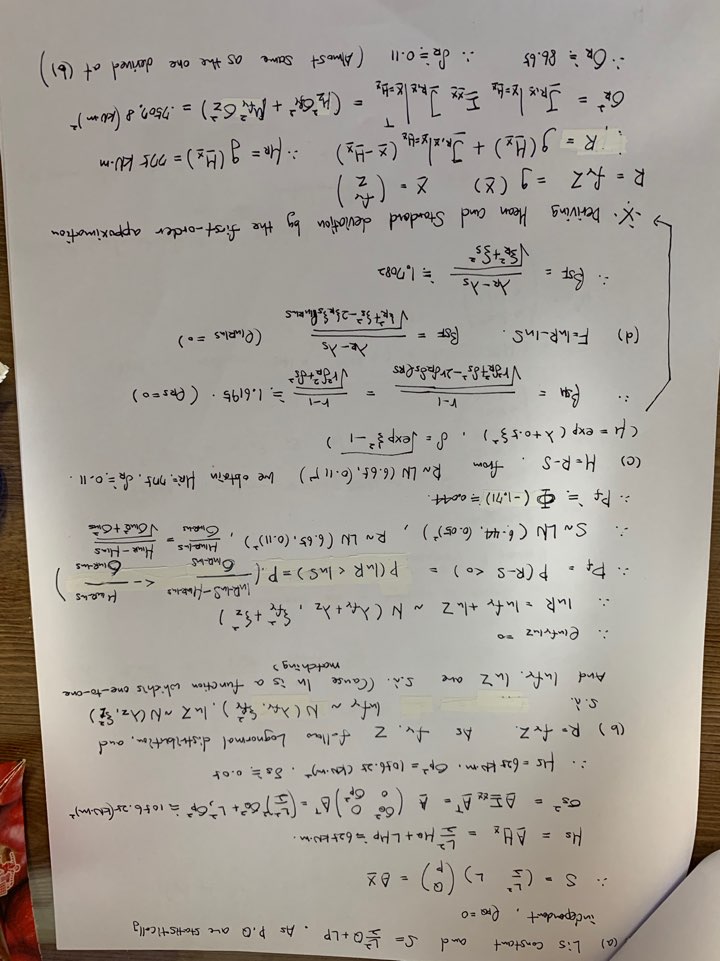 (a) L is constant and S = L²/2 Q + LP. As P, Q are statistically
independent, ρ_PQ = 0
∴ S = (L²/2 L) (Q P) = A X
μ_S = A μ_X = L²/2 μ_Q + L μ_P ≒ 625 kN·m.
σ_S² = A Σ_XX Aᵀ = A (σ_Q² 0 0 σ_P²) Aᵀ = (L²/2)² σ_Q² + L² σ_P² ≒ 1056.25 (kN·m)²
∴ μ_S = 625 kN·m. σ_S² = 1056.25 (kN·m)². δ_S ≒ 0.05
(b) R = f_Y Z. As f_Y, Z follow Lognormal distribution, and
s.i. ln f_Y ~ N(λ_fY, ζ_fY²), ln Z ~ N(λ_Z, ζ_Z²)
And ln f_Y, ln Z are s.i. (Cause ln is a function which is one-to-one
matching)
∴ ρ_lnfY lnZ = 0
∴ ln R = ln f_Y + ln Z ~ N(λ_fY + λ_Z, ζ_fY² + ζ_Z²)
∴ P_f = P(R-S < 0) = P(ln R < ln S) = P( (lnR-lnS - μ_lnR-lnS)/σ_lnR-lnS < - μ_lnR-lnS/σ_lnR-lnS )
∴ S ~ LN(6.44, (0.05)²), R ~ LN(6.65, (0.11)²), μ_lnR-lnS/σ_lnR-lnS = (μ_lnR - μ_lnS)/√(σ_lnR² + σ_lnS²)
∴ P_f ≒ Φ(-1.71) ≒ 0.044.
(c) M = R-S. from R ~ LN(6.65, (0.11)²) we obtain μ_R ≒ 775, δ_R ≒ 0.11.
(μ = exp(λ + 0.5ζ²), δ = √(exp ζ² - 1))
∴ β_SM = (r-1)/√(r²δ_R² + δ_S² - 2rδ_Rδ_Sρ_RS) = (r-1)/√(r²δ_R² + δ_S²) ≒ 1.6195. (ρ_RS = 0)
(d) F = lnR - lnS. β_SF = (λ_R - λ_S)/√(ζ_R² + ζ_S² - 2ζ_Rζ_Sρ_lnRlnS) (ρ_lnRlnS = 0)
∴ β_SF = (λ_R - λ_S)/√(ζ_R² + ζ_S²) ≒ 1.7082
※. Deriving Mean and Standard deviation by the first-order approximation
R = f_Y Z = g(X) X = (f_Y Z)
∴ R ≒ g(μ_X) + J_R,X|X=μ_X (X - μ_X) ∴ μ_R = g(μ_X) = 775 kN·m
σ_R² = J_R,X|X=μ_X Σ_XX J_R,X|X=μ_Xᵀ = (μ_Z² σ_fY² + μ_fY² σ_Z²) = 7507.8 (kN·m)²
∴ σ_R ≒ 86.65 ∴ δ_R ≒ 0.11 (Almost same as the one derived at (b))